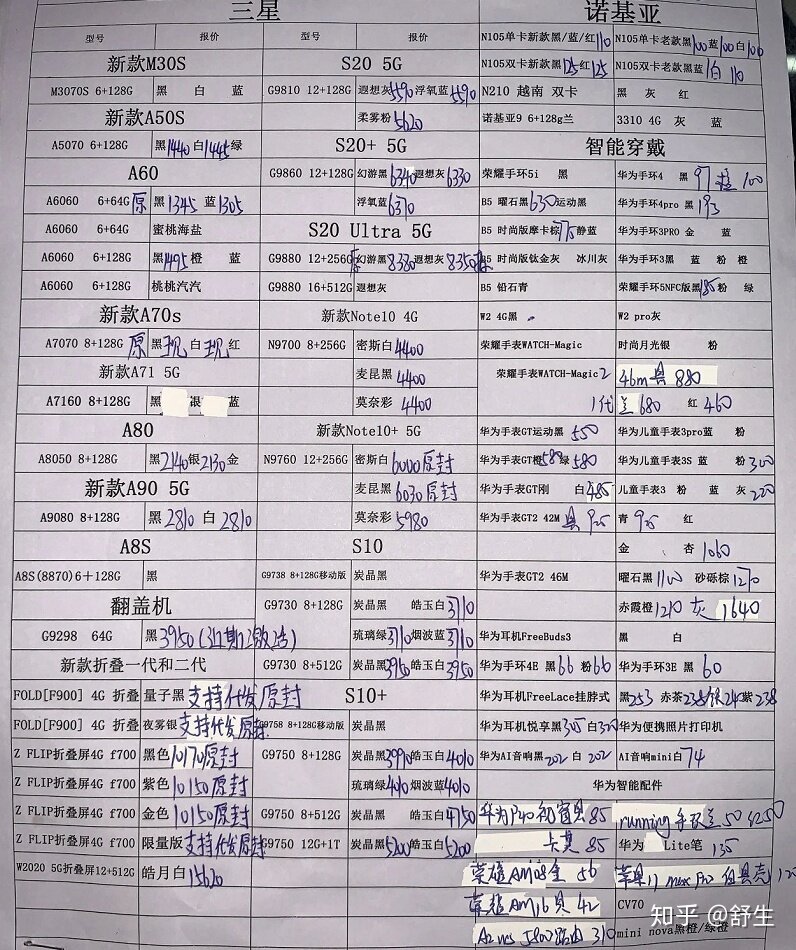 三星 诺基亚
型号 报价 型号 报价 N105单卡新款黑/蓝/红110 N105单卡老款黑100蓝100白100
新款M30S S20 5G N105双卡新款黑125红125 N105双卡老款黑蓝 白 110
M3070S 6+128G 黑 白 蓝 G9810 12+128G 遐想灰5590浮氧蓝5590 N210 越南 双卡 黑 灰 红
新款A50S 柔雾粉5620 诺基亚9 6+128g兰 3310 4G 灰 蓝
A5070 6+128G 黑1440白1445绿 S20+ 5G 智能穿戴
A60 G9860 12+128G 幻游黑6340遐想灰6330 荣耀手环5i 黑 华为手环4 黑 97 100
A6060 6+64G原 黑1345 蓝1305 浮氧蓝6370 B5 曜石黑630运动黑 华为手环4pro 黑193
A6060 6+64G 蜜桃海盐 S20 Ultra 5G B5 时尚版摩卡棕775静蓝 华为手环3PRO 金 蓝
A6060 6+128G 黑1495橙 蓝 G9880 12+256G 幻游黑8380遐想灰8350 B5 时尚版钛金灰 冰川灰 华为手环3黑 蓝 粉 橙
A6060 6+128G 桃桃汽汽 G9880 16+512G 遐想灰 B5 铅石青 荣耀手环5NFC版黑185粉 绿
新款A70s 新款Note10 4G W2 4G黑 W2 pro灰
A7070 8+128G 原 黑现 白现 红 N9700 8+256G 密斯白4400 荣耀手表WATCH-Magic 时尚月光银 粉
新款A71 5G 麦昆黑4400 荣耀手表WATCH-Magic2 46m黑 880
A7160 8+128G 黑 银 蓝 莫奈彩 4400 1代 680 红 460
A80 新款Note10+ 5G 华为手表GT运动黑 550 华为儿童手表3pro蓝 粉
A8050 8+128G 黑2140银2130金 N9760 12+256G 密斯白6000原封 华为手表GT橙580绿 580 华为儿童手表3S 蓝 粉300
新款A90 5G 麦昆黑6030原封 华为手表GT刚 白485 儿童手表3 粉 蓝 灰220
A9080 8+128G 黑 2810 白 2810 莫奈彩5980 华为手表GT2 42M 黑 925 青 925 红
A8S S10 金 、 杏 1060
A8S(8870)6+128G 黑 G9738 8+128G移动版 炭晶黑 华为手表GT2 46M 曜石黑1100 砂砾棕1270
翻盖机 G9730 8+128G 炭晶黑 皓玉白3710 赤霞橙1210 灰 1640
G9298 64G 黑3950 琉璃绿3710烟波蓝3710 华为耳机FreeBuds3 黑 白
新款折叠一代和二代 G9730 8+512G 炭晶黑3950皓玉白3950 华为手环4E 黑66 粉66 华为手环3E 黑 60
FOLD[F900] 4G 折叠 量子黑支持代发原封 S10+ 华为耳机FreeLace挂脖式 黑253 赤茶238银240紫238
FOLD[F900] 4G 折叠 夜雾银支持代发原封 G9758 8+128G移动版 炭晶黑 华为耳机悦享黑305白320 华为便携照片打印机
Z FLIP折叠屏4G f700 黑色10170原封 G9750 8+128G 炭晶黑3990皓玉白4010 华为AI音响黑202 白 202 AI音响mini白74
Z FLIP折叠屏4G f700 紫色10150原封 琉璃绿4010烟波蓝4010 华为智能配件
Z FLIP折叠屏4G f700 金色10150原封 G9750 8+512G 炭晶黑 皓玉白4750 华为P40视窗 85 running手环 50
Z FLIP折叠屏4G f700 限量版支持代发原封 G9750 12G+1T 炭晶黑5200皓玉白5200 85 华为 Lite笔 135
W2020 5G折叠屏12+512G 皓月白15620 荣耀AM08金 56 苹果11 max Pro
荣耀AM16黑 42 CV70
路由 310 mini nova黑橙/绿橙
知乎 @舒生